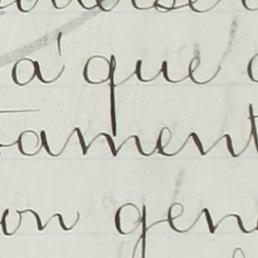 a' que
ament
on gen